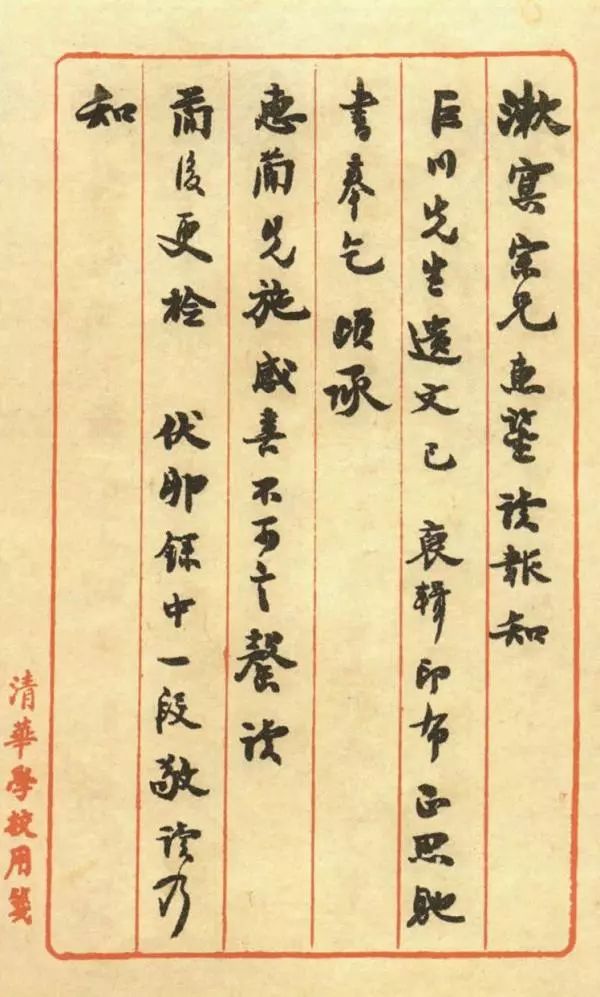 漱冥宗兄惠鑒讀報知
巨川先生遺文已裒輯印布正思馳
書奉乞頃承
惠簡先施感喜不可言罄讀
簡後更檢伏卵錄中一段敬讀乃
知
清華學校用箋